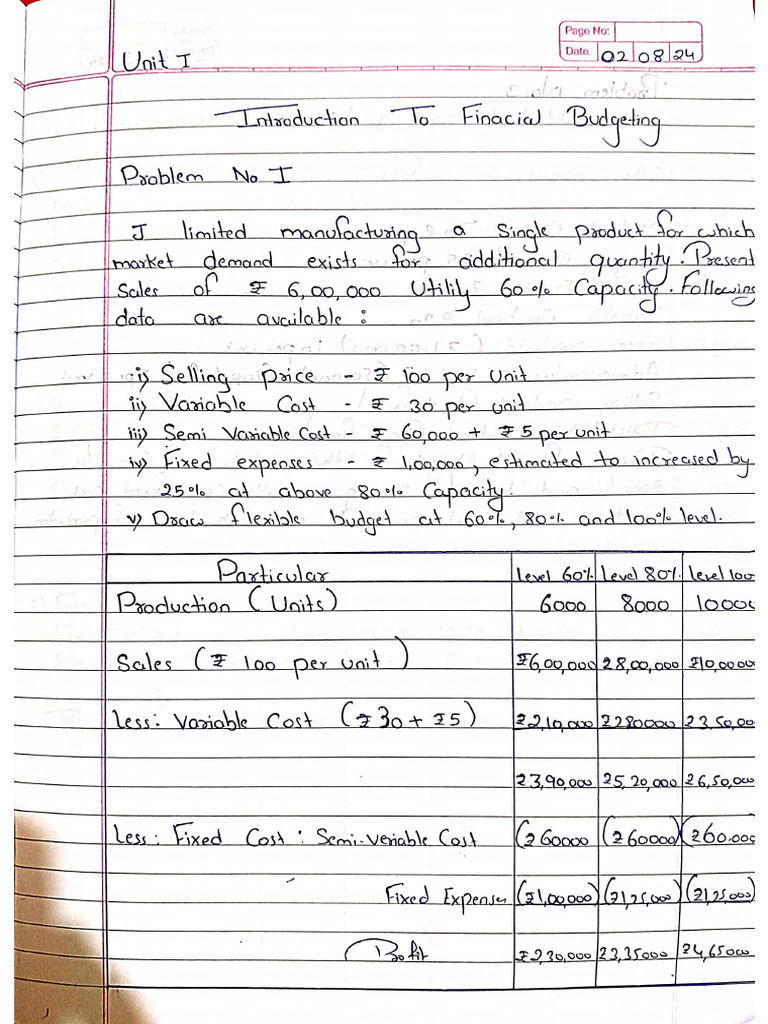 Page No:
Date. 02 08 24
Unit I
Introduction To Finacial Budgeting
Problem No I
J limited manufacturing a single product for which
market demand exists for additional quantity. Present
Sales of ₹ 6,00,000 Utility 60% Capacity. Following
data are available :
i) Selling price - ₹ 100 per unit
ii) Variable Cost - ₹ 30 per unit
iii) Semi Variable Cost - ₹ 60,000 + ₹5 per unit
iv) Fixed expenses - ₹ 1,00,000, estimated to increased by
25% at above 80% Capacity.
v) Draw flexible budget at 60%, 80% and 100% level.
Particular level 60% level 80% level 100
Production (Units) 6000 8000 10000
Sales (₹ 100 per unit) ₹6,00,000 ₹8,00,000 ₹10,00000
less: Variable Cost (₹30 + ₹5) ₹210,000 ₹280000 ₹3,50,00
₹3,90,000 ₹5,20,000 ₹6,50,000
Less: Fixed Cost : Semi-Veriable Cost (₹60000 (₹60000) (₹60.000
Fixed Expenses (₹1,00,000) (₹1,25,000) (₹1,25000)
Profit ₹230,000 ₹3,35000 ₹4,65000